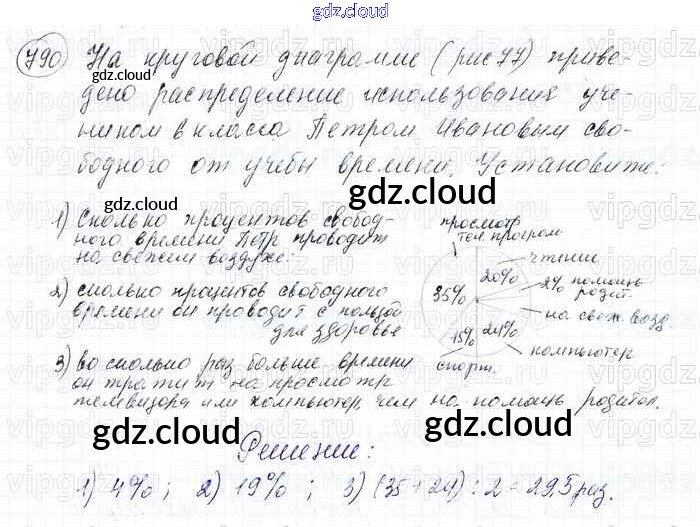 gdz.cloud
790 На круговой диаграмме (рис 77) приве-
дено распределение использования уче-
ником 6 класса Петром Ивановым сво-
бодного от учёбы времени. Установите:
gdz.cloud
gdz.cloud
1) Сколько процентов свобод-
ного времени Пётр проводит
на свежем воздухе.
2) сколько процентов свободного
времени он проводит с пользой
для здоровье
3) во сколько раз больше времени
он тратит на просмотр
телевизора или компьютер, чем на помощь родител.
просмотр
тел. програм.
чтение
20%
2% помощь
родит.
на свеж. возд.
35%
15% 24%
компьютер
спорт.
gdz.cloud
gdz.cloud
Решение:
1) 4%; 2) 19%; 3) (35+24):2=29,5 раз.
gdz.cloud